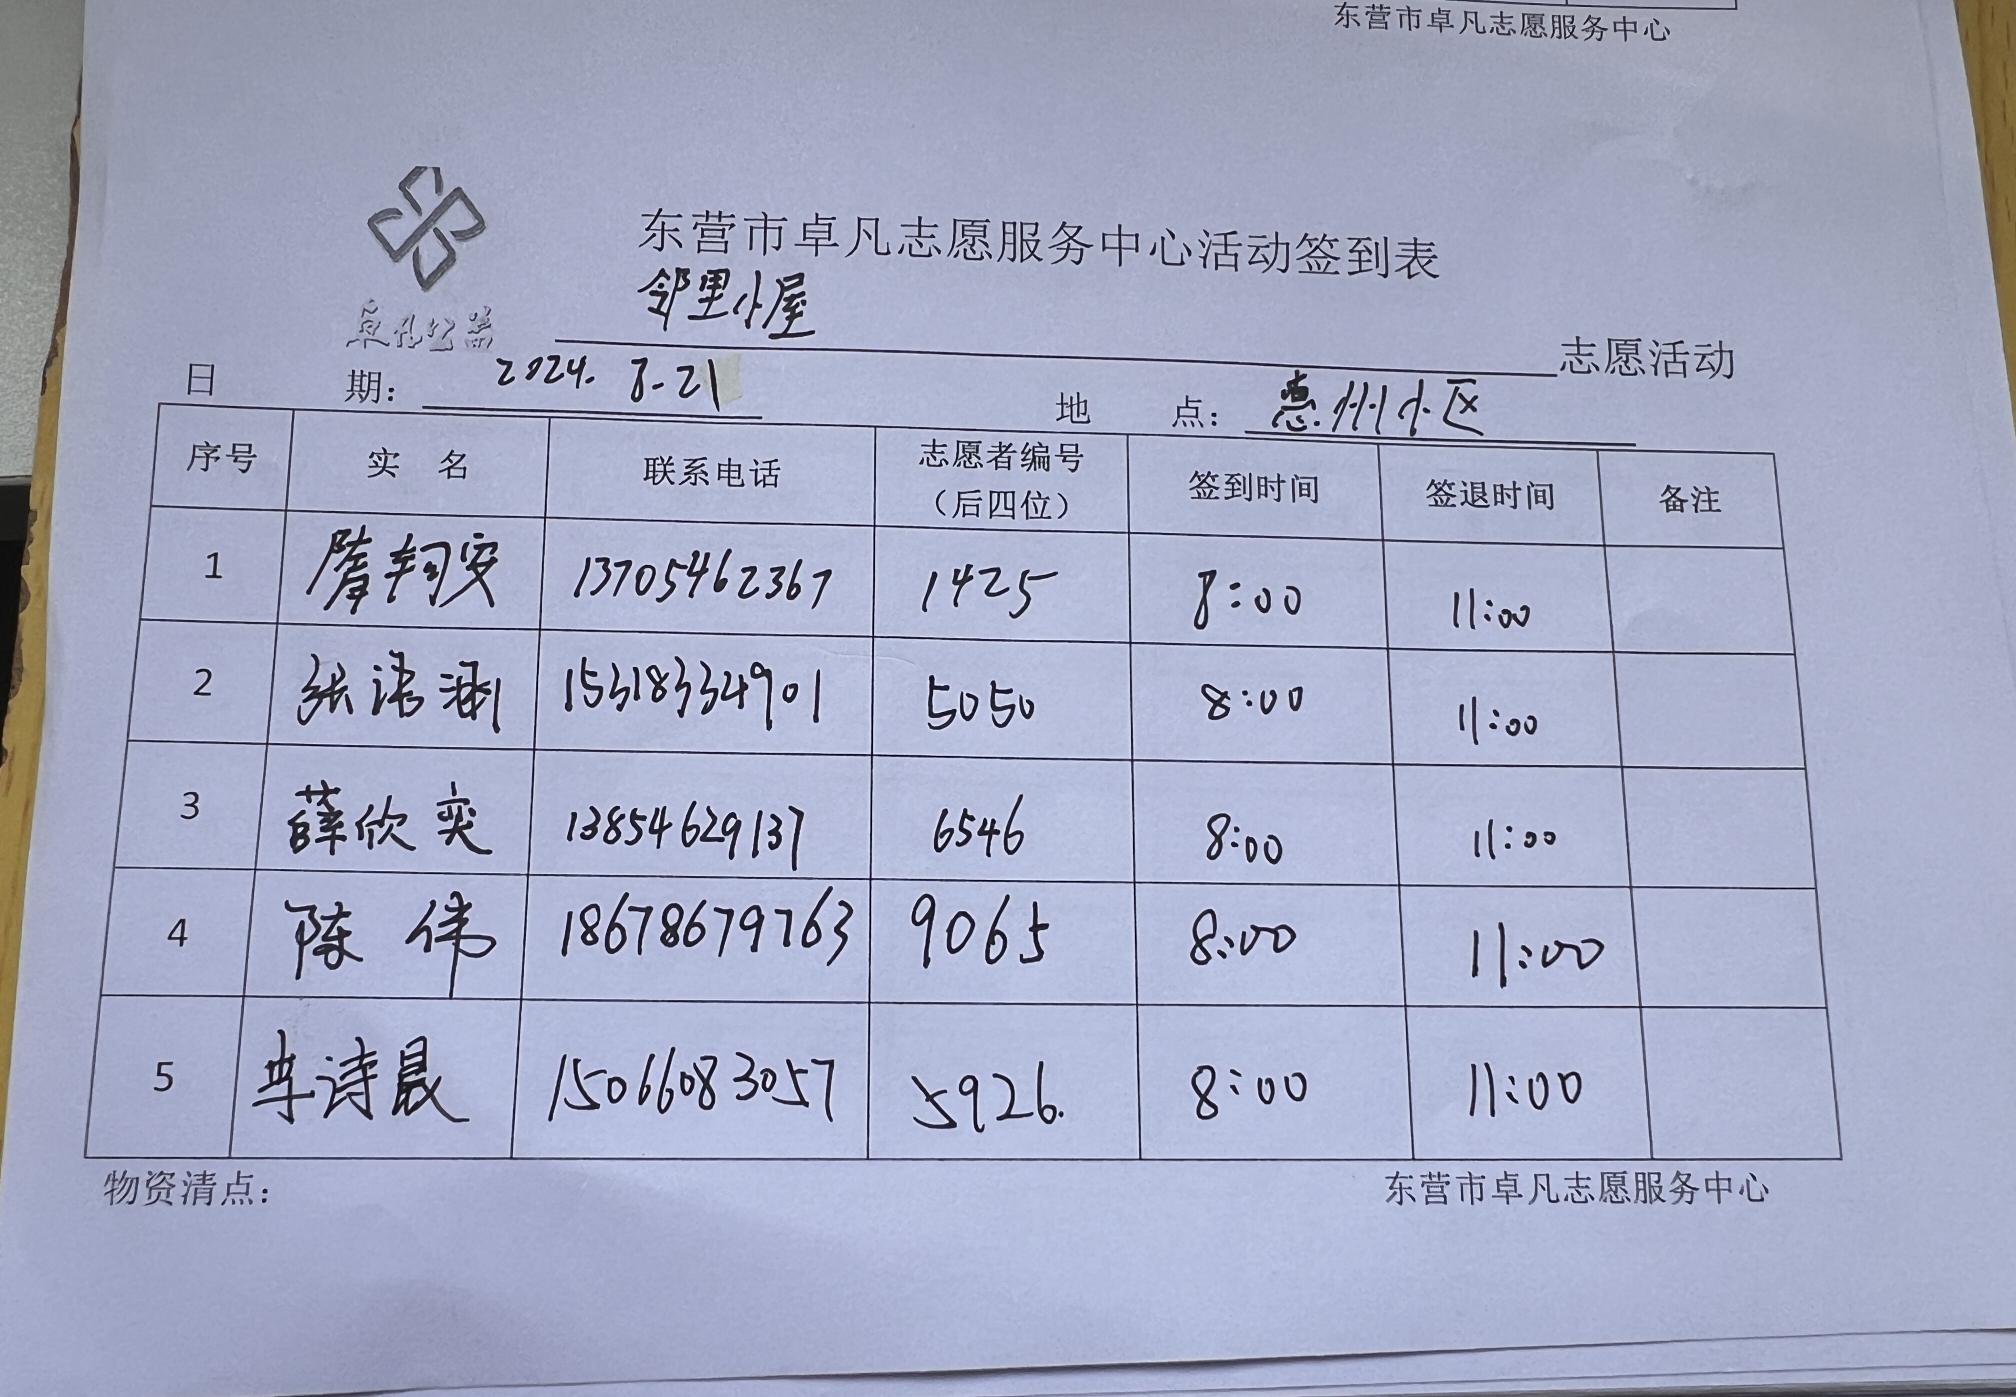 东营市卓凡志愿服务中心
东营市卓凡志愿服务中心活动签到表
卓凡公益
邻里小屋 志愿活动
日 期： 2024. 8.21 地 点： 惠州小区
序号 实 名 联系电话 志愿者编号（后四位） 签到时间 签退时间 备注
1 隋翔安 13705462367 1425 8:00 11:00
2 张语涵 15318334901 5050 8:00 11:00
3 薛欣奕 13854629137 6546 8:00 11:00
4 陈伟 18678679763 9065 8:00 11:00
5 李诗晨 15066083057 5926. 8:00 11:00
物资清点： 东营市卓凡志愿服务中心